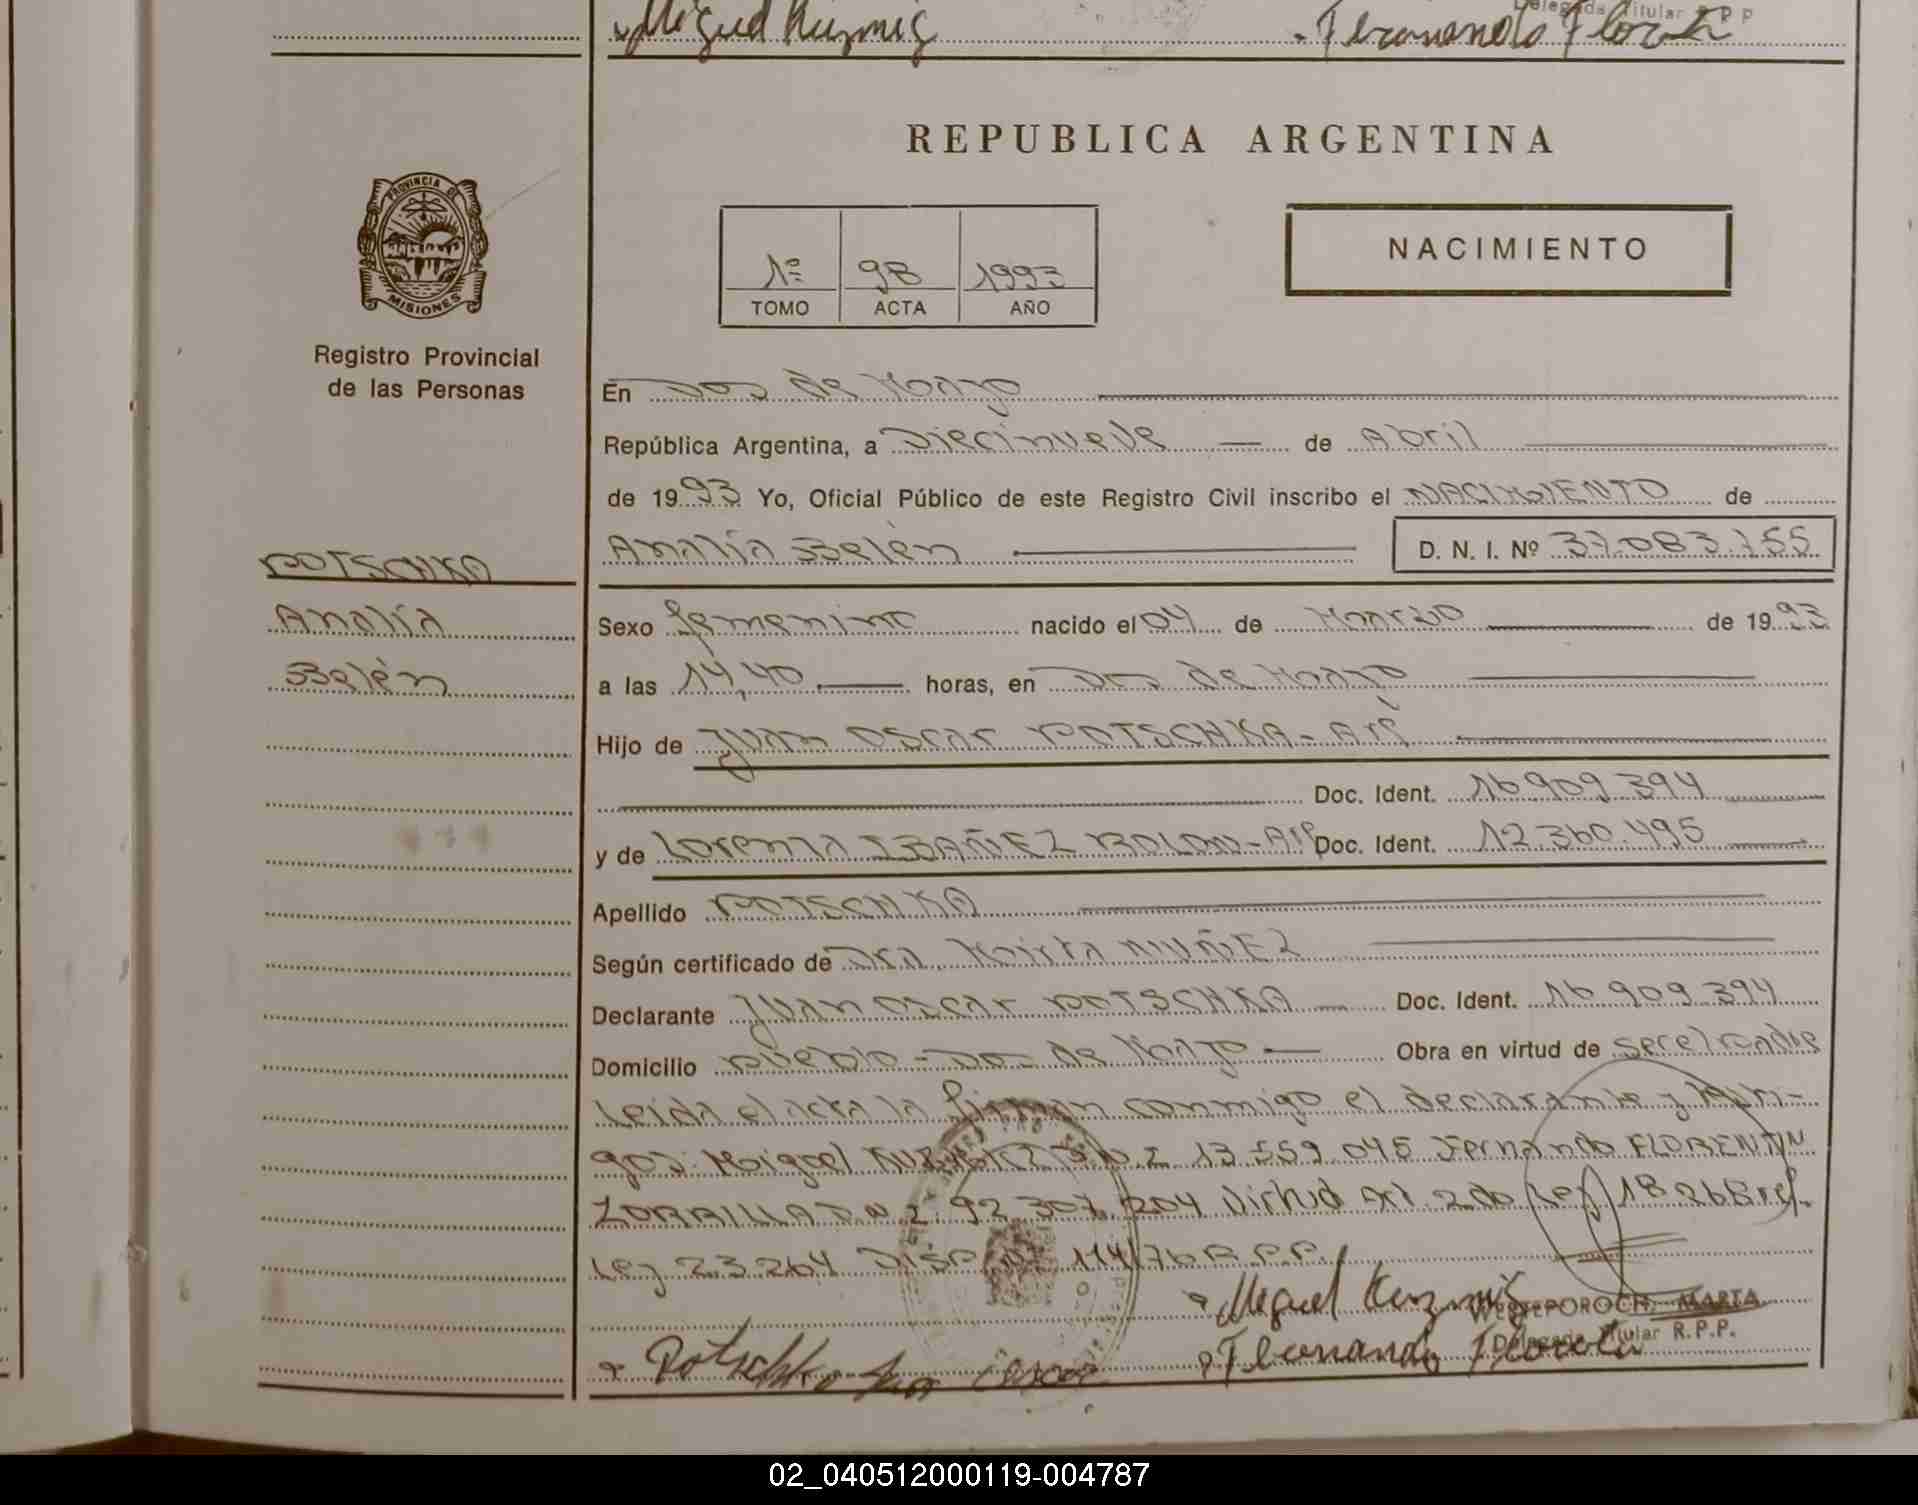 Delegada Titular R.P.P
Miguel Kuzmiz
Fernando
REPUBLICA ARGENTINA
PROVINCIA DE
MISIONES
NACIMIENTO
1º 98 1993
TOMO ACTA AÑO
Registro Provincial
de las Personas
En Dos de Mayo
República Argentina, a Diecinueve de Abril
de 1993 Yo, Oficial Público de este Registro Civil inscribo el NACIMIENTO de
Analía Belén D. N. I. Nº 37.083.155
POTSCHKA
Analía
Belén
Sexo femenino nacido el 04 de Marzo de 1993
a las 14,40 horas, en Dos de Mayo
Hijo de JUAN OSCAR POTSCHKA - Arg
Doc. Ident. 16 909 394
y de Lorenza IBAÑEZ - Arg Doc. Ident. 12 360.495
Apellido POTSCHKA
Según certificado de Dra. Mirta NUÑEZ
Declarante JUAN OSCAR POTSCHKA Doc. Ident. 16 909 394
Domicilio Pueblo - Dos de Mayo Obra en virtud de ser el padre
Leída el acta la firman conmigo el declarante y testi-
gos: Miguel D N I 13 559 045 Fernando FLORENTIN
ZORRILLA D N I 92 307 204 Virtud Art. 2do Ley 18 268 ref.
Ley 23.264 DISP Nº 114/76 R.P.P.
Miguel Kuzmiz
POROCH, MARTA
Delegada Titular R.P.P.
Potschka Juan Oscar Fernando
02_040512000119-004787